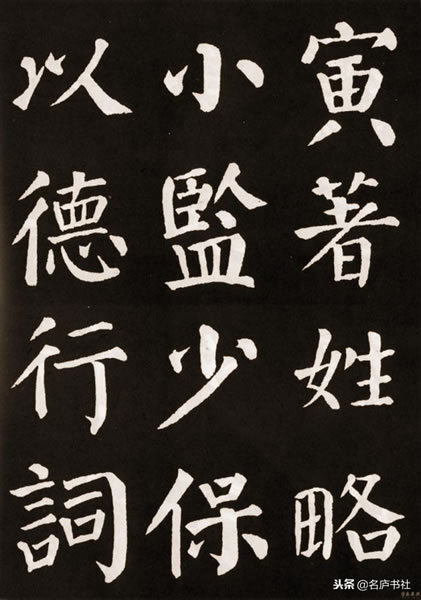 寅著姓略
小監少保
以德行詞
头条 @名庐书社